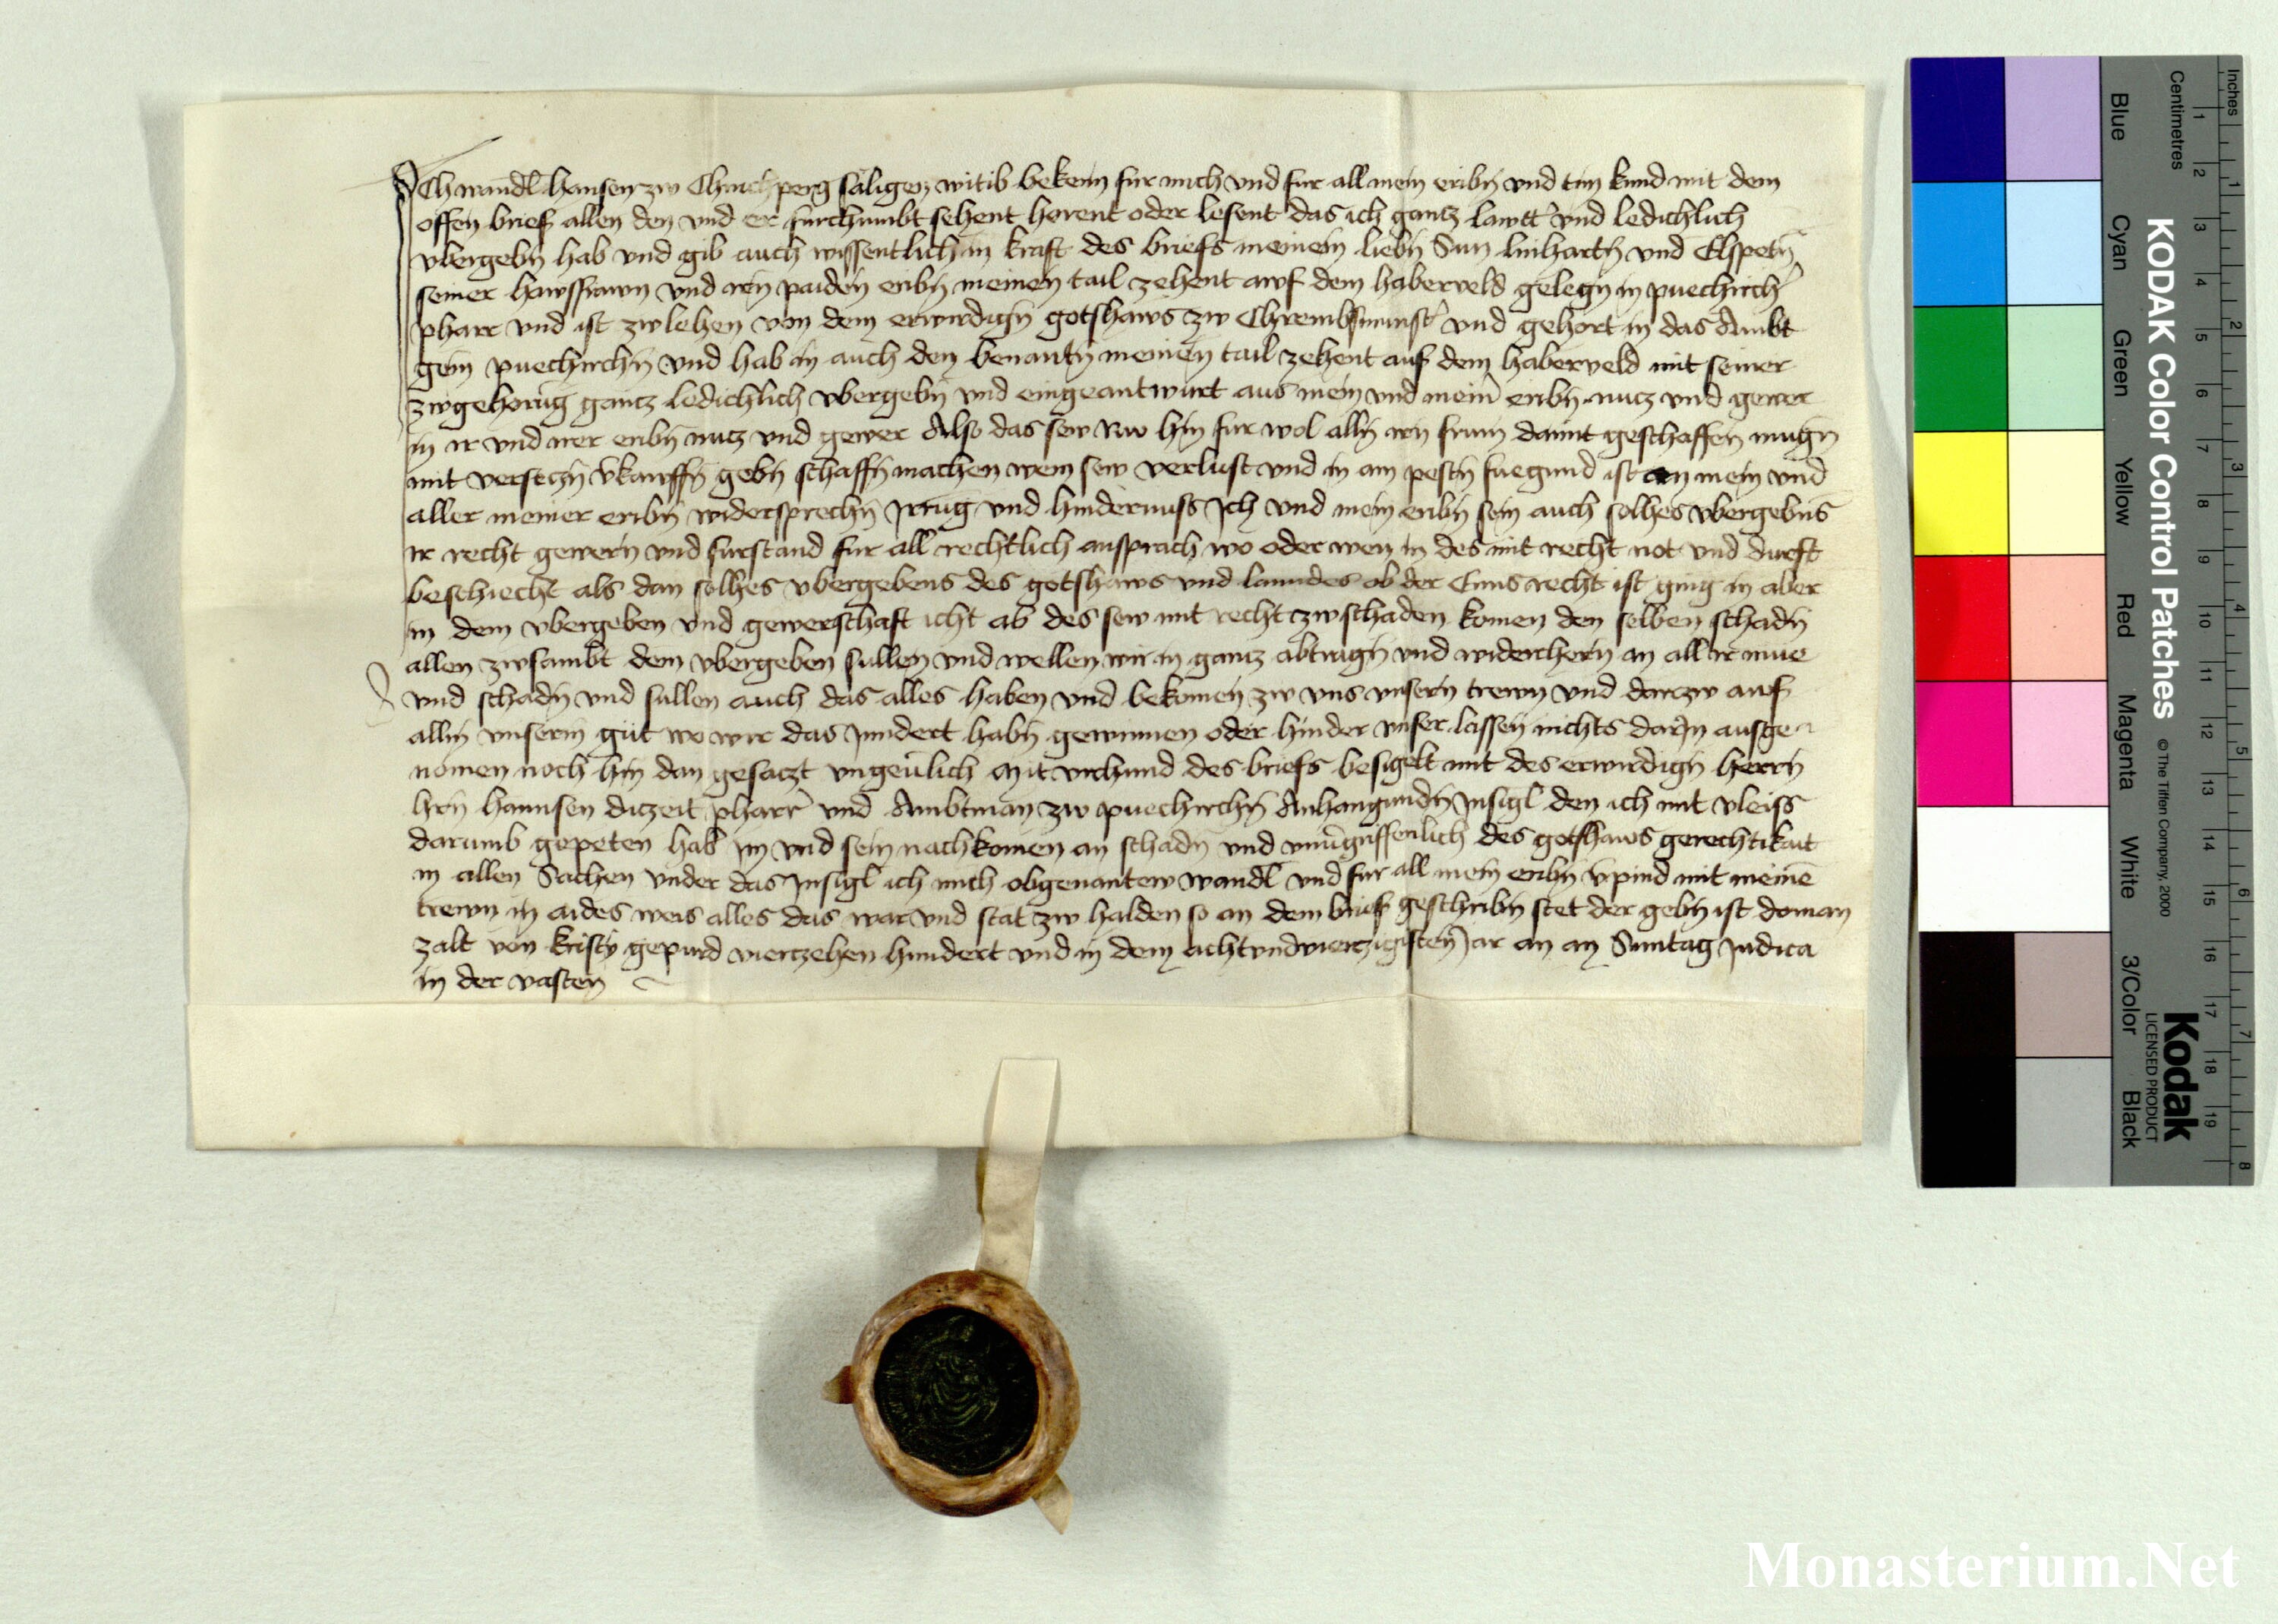 Ich wandl hansen zw Chirichperg säligen witib bekenn fur mich vnd fur all mein eribn̄ vnd tun kund mit dem
offen brief allen den vnd er furchumbt sehent horent oder lesent das ich gantz lawtt̄ vnd ledichlich
vbergebn̄ hab vnd gib auch wissentlich in kraft des briefs meinem liebn̄ Sun linhartn̄ vnd Elspetn̄
seiner hawsfrawn vnd irn̄ paiden eribn̄ meinen tail zehent awf dem haberveld gelegn̄ in puechircher̄
pharr vnd ist zw lehen von dem erwirdign̄ gotshaws zw Chrembsmunst̄ vnd gehort in das Ambt
gein puechirchn̄ vnd hab in auch den benantn̄ meinen tail zehent auf dem haberveld mit seiner
zwgehorūg gantz ledichlich vbergebn̄ vnd eingeantwurt aus mein vnd mein̄ eribn̄ nutz vnd gewer
in ir vnd irer eribn̄ nutz vnd gewer Also das sew nw hin fur wol alln̄ irn frum damit geschaffen mugn̄
mit versetzn̄ v̄kauffn̄ gebn̄ schaffn̄ machen wem sew verlust vnd in am pestn̄ fuegund ist an mein vnd
aller meiner eribn̄ widersprechn̄ Irrūg vnd hindernuss Ich vnd mein eribn̄ sein auch solhes vbergebn̄s
ir recht gewern̄ vnd furstand fur all rechtlich ansprach wo oder wen in des mit recht not vnd durft
beschiecht als dan solhes vbergebens des gotshaws vnd lanndes ob der Enns recht ist ging in aber
in dem vbergeben vnd gewerschaft icht ab des sew mit recht zw schaden komen den selben schadn̄
allen zwsambt dem vbergeben sullen vnd wellen wir in gantz abtragn̄ vnd widerchern̄ an all ir mue
vnd schadn̄ vnd sullen auch das alles haben vnd bekomen zw vns vnsern trewn vnd darzw auf
alln̄ vnserm gut wo wir das Inndert habn̄ gewinnen oder hinder vnser lassen nichts darIn ausge
nomen noch hin dan gesaczt vngeūlich Mit vrchund des briefs besigelt mit des erwirdign̄ herrn̄
hrn̄ hannsen diczeit pharr̄ vnd Ambtman zw puechirchn̄ Anhangundn̄ Insigl den ich mit vleiss
darumb gepeten hab im vnd sein nachkomen an schadn̄ vnd vnūgriffenlich des gotshaws gerechtikait
in allen Sachen vnder das Insigl ich mich obgenantew wandl vnd fur all mein eribn̄ v̄pind mit meinē
trewn in aides weis alles das war vnd stat zw halden so an dem brief geschribn̄ stet der gebn̄ ist do man
zalt von kristy gepurd vierczehen hundert vnd in dem achtvndvierzigisten Jar an an Sunntag Judica
in der vasten
Inches
Centimetres
KODAK Color Control Patches
© The Tiffen Company, 2000
Kodak
LICENSED PRODUCT
Blue
Cyan
Green
Yellow
Red
Magenta
White
3/Color
Black
1 2 3 4 5 6 7 8
1 2 3 4 5 6 7 8 9 10 11 12 13 14 15 16 17 18 19
Monasterium.Net